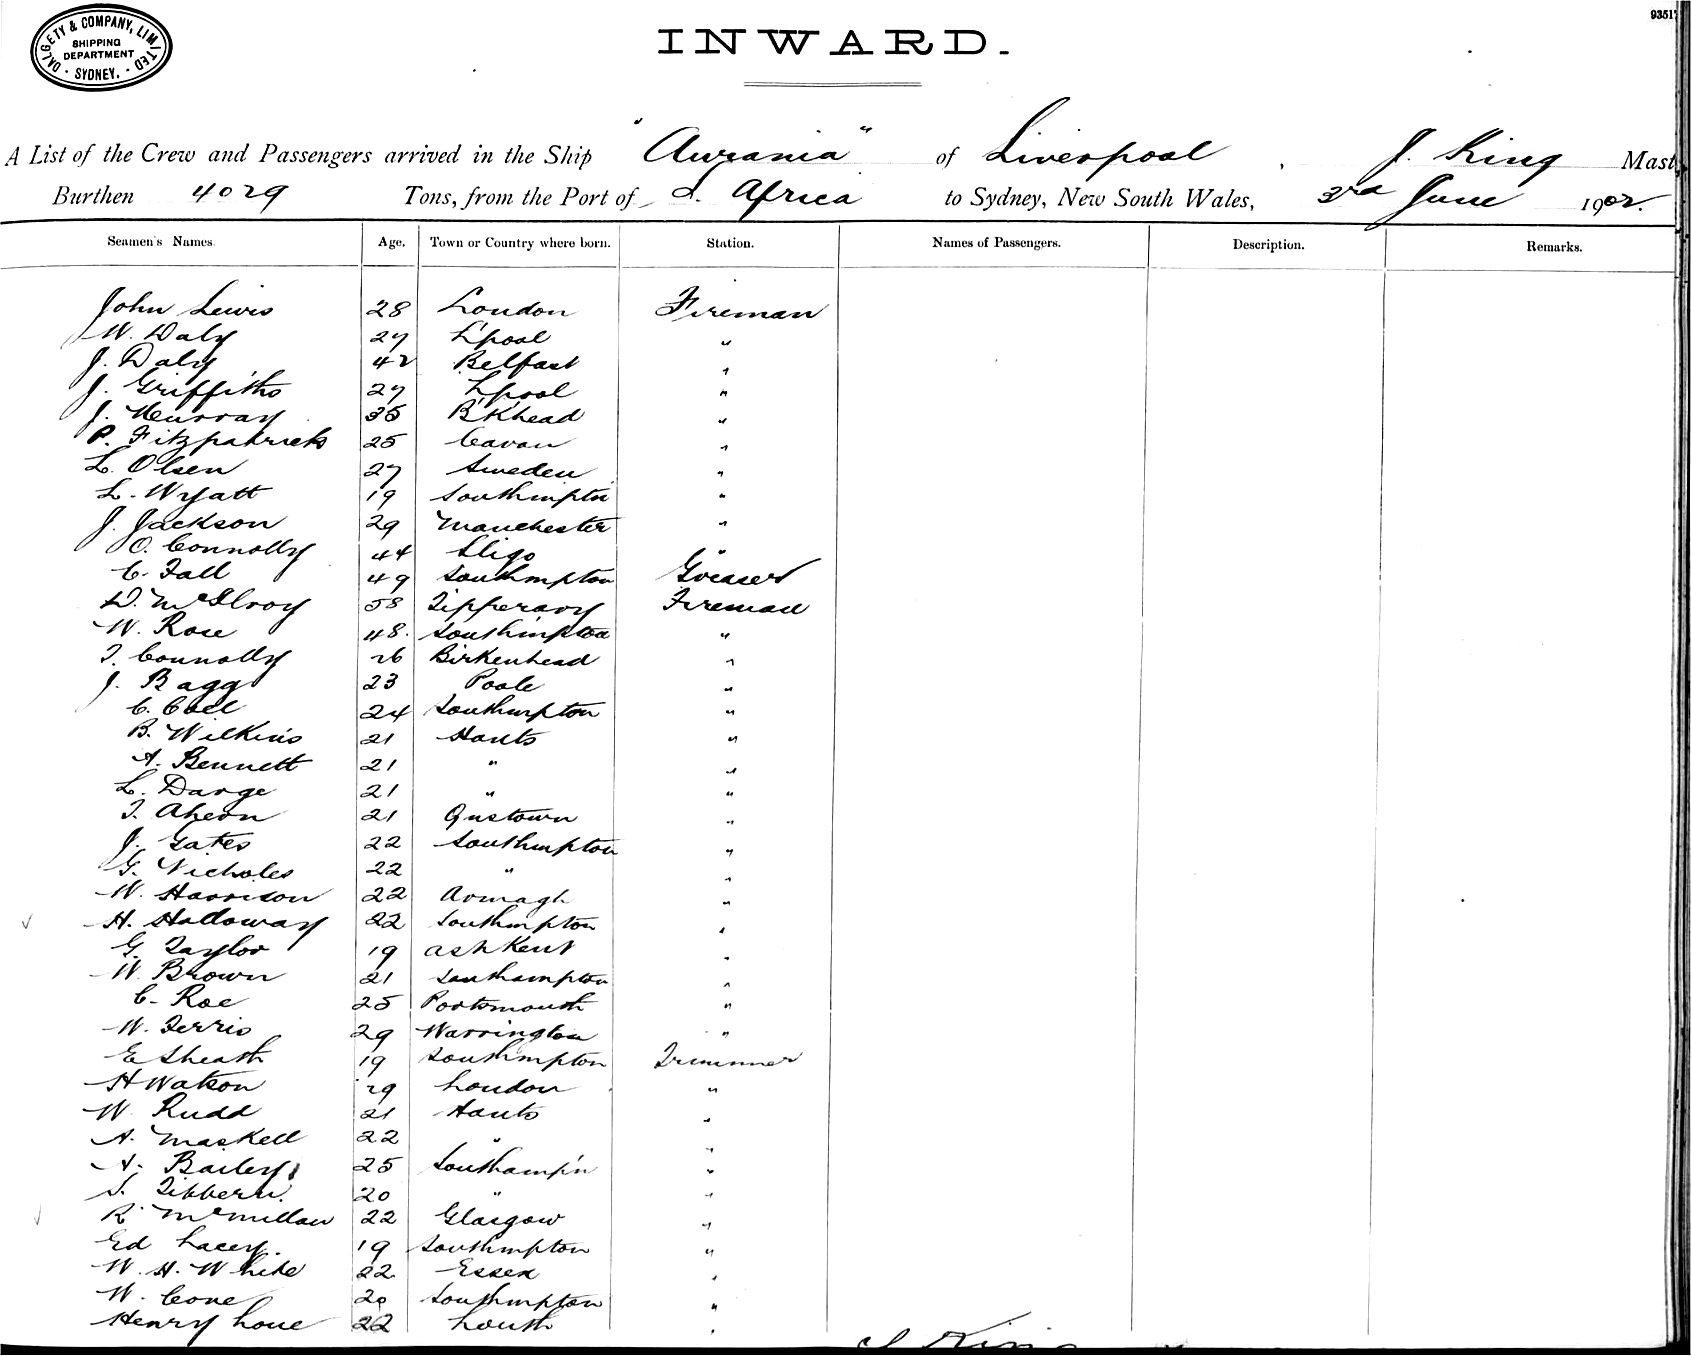 DALGETY & COMPANY, LIMITED
SHIPPING
DEPARTMENT
· SYDNEY. ·
9351
INWARD.
A List of the Crew and Passengers arrived in the Ship "Aurania" of Liverpool, J. King Mast
Burthen 4029 Tons, from the Port of S. Africa to Sydney, New South Wales, 3rd June 1902.
Seamen's Names. Age. Town or Country where born. Station. Names of Passengers. Description. Remarks.
John Lewis 28 London Fireman
W. Daly 27 L'pool "
J. Daly 42 Belfast "
J. Griffiths 27 L'pool "
J. Murray 35 B'Khead "
P. Fitzpatrick 25 Cavan "
L. Olsen 27 Sweden "
L. Wyatt 19 Southmpton "
J. Jackson 29 Manchester "
O. Connolly 44 Sligo "
C. Fall 49 Southmpton Greaser
D. McIlroy 58 Tipperary Fireman
W. Rose 48. Southmpton "
T. Connolly 26 Birkenhead "
J. Bagg 23 Poole "
C. 24 Southmpton "
B. Wilkins 21 Hants "
A. Bennett 21 " "
L. Darge 21 " "
T. Ahern 21 Qnstown "
J. Gates 22 Southmpton "
G. Nicholes 22 " "
W. Harrison 22 Armagh "
H. Halloway 22 Southmpton "
G. Taylor 19 Ash Kent "
W. Brown 21 Southampton "
C. Roe 25 Portsmouth "
W. Ferris 29 Warrington "
E Sheath 19 Southmpton Trimmer
H Watson 29 London "
W. Rudd 21 Hants "
A. Maskell 22 " "
A. Bailey 25 Southamp'n "
S. 20 " "
R. McMillan 22 Glasgow "
Ed Lacey. 19 Southmpton "
W. H. White 22 Essex "
W. Cove 20 Southmpton "
Henry Love 22 Louth "
J King